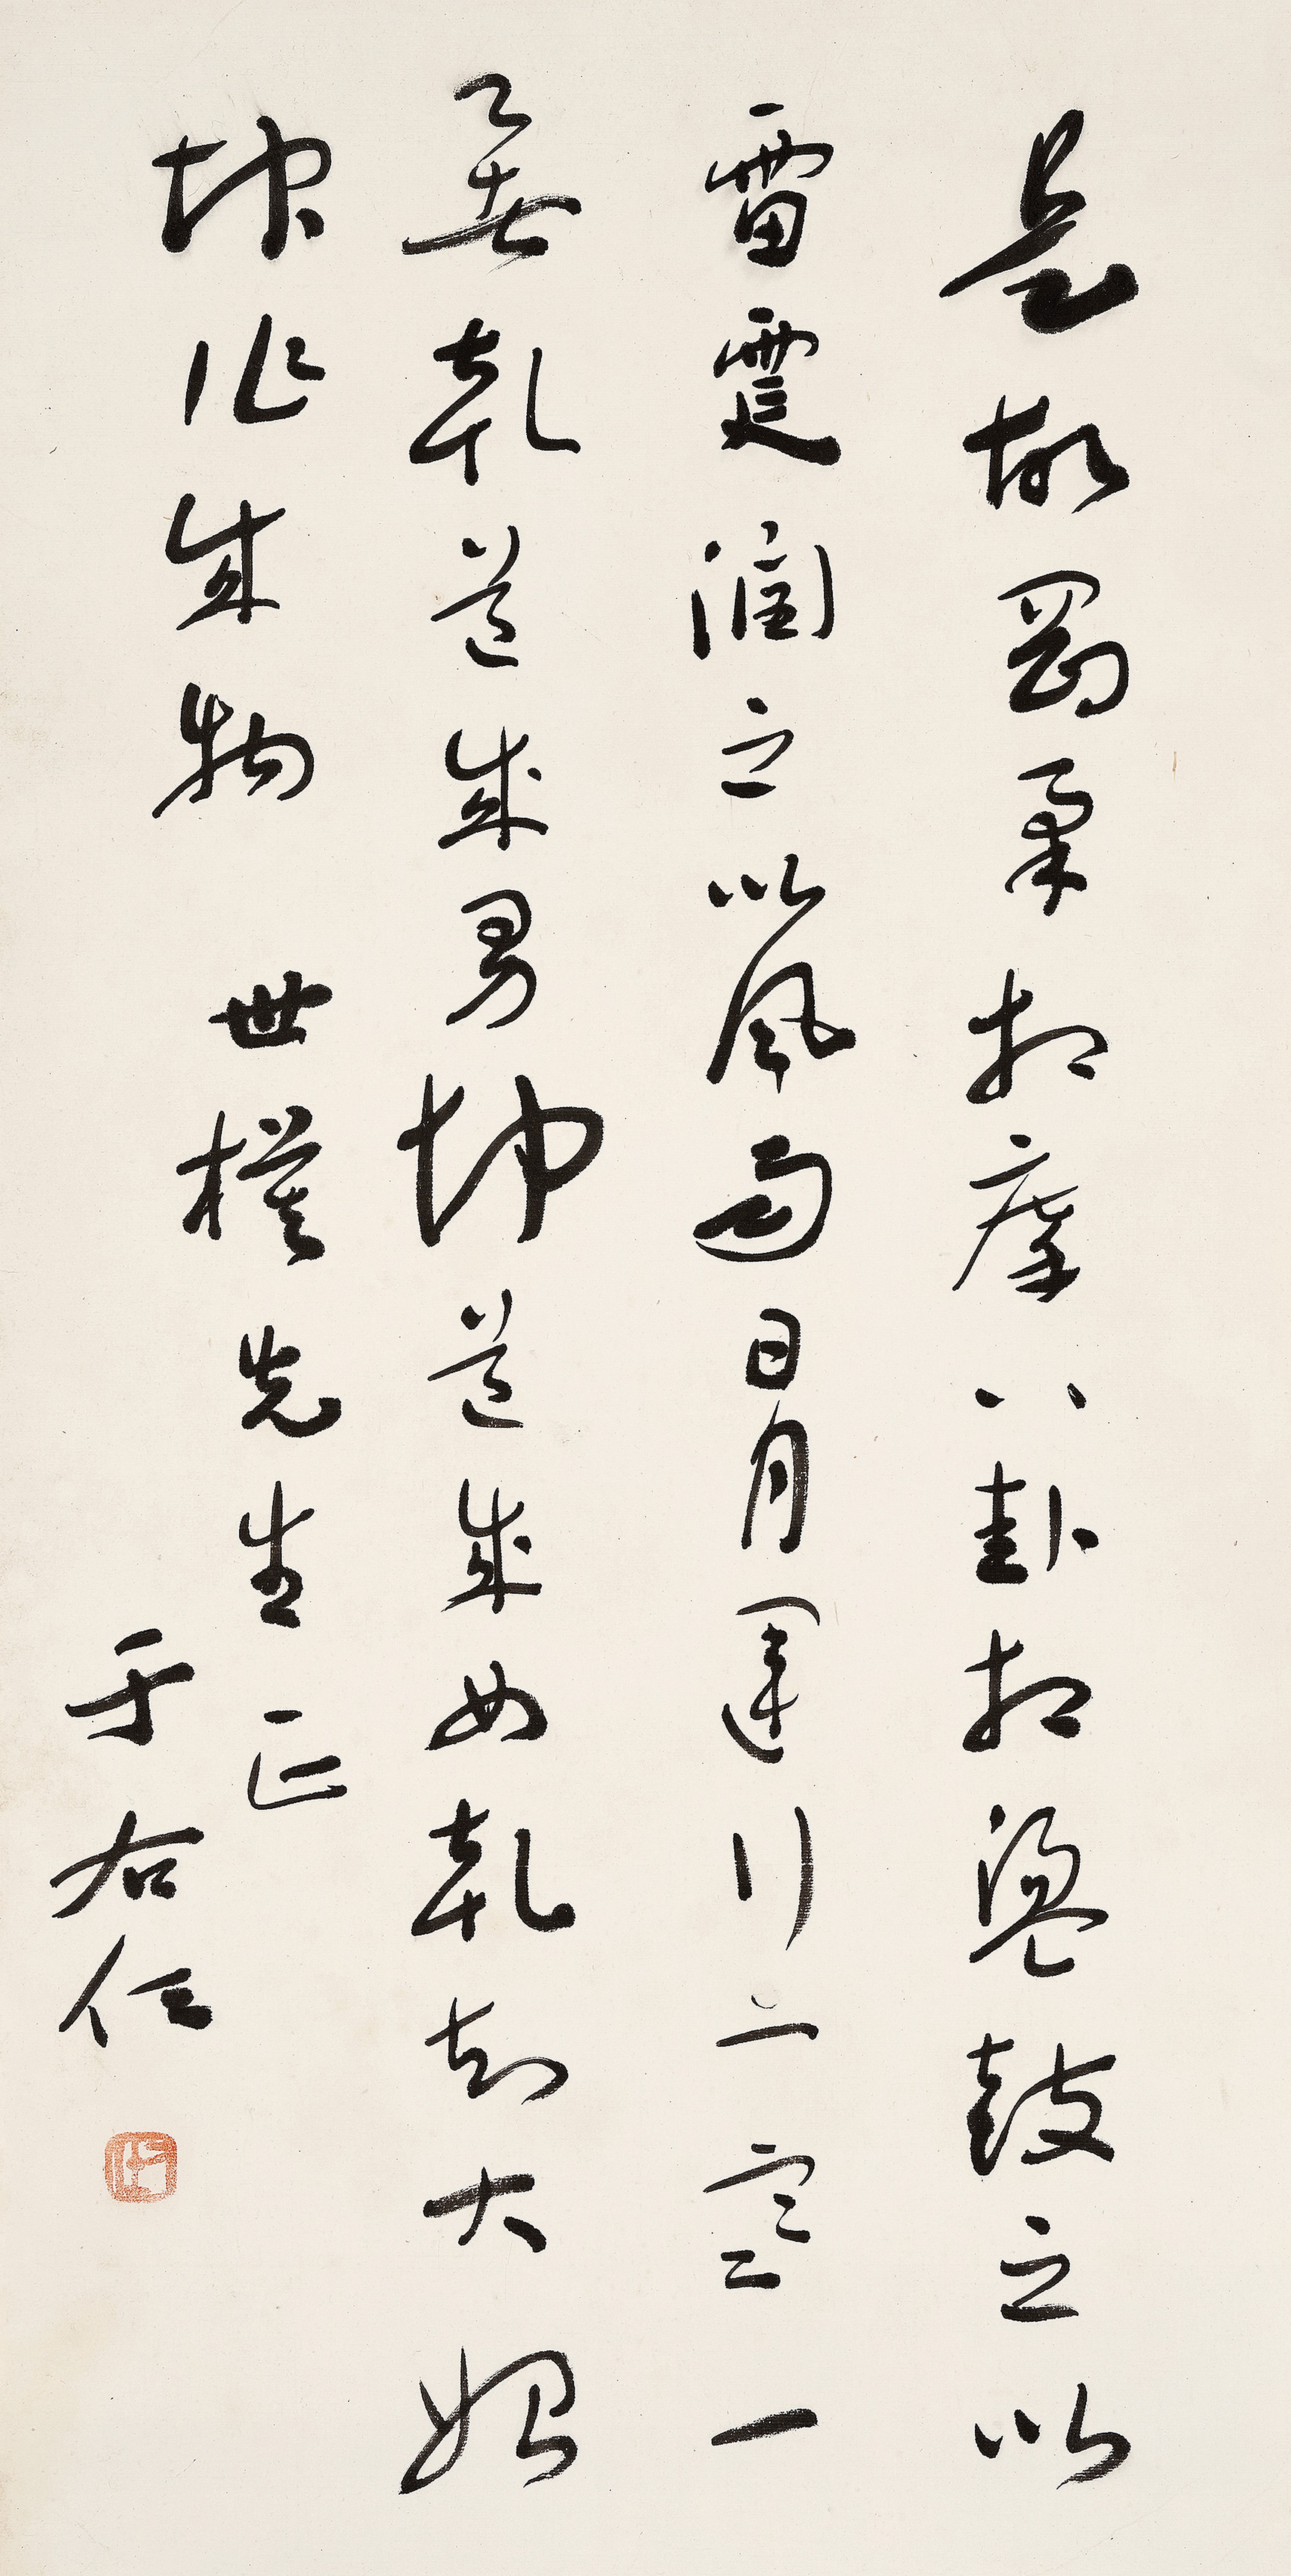 是故剛柔相摩八卦相盪鼓之以
雷霆潤之以風雨日月運行一寒一
暑乾道成男坤道成女乾知大始
坤作成物 世樸先生正
于右任